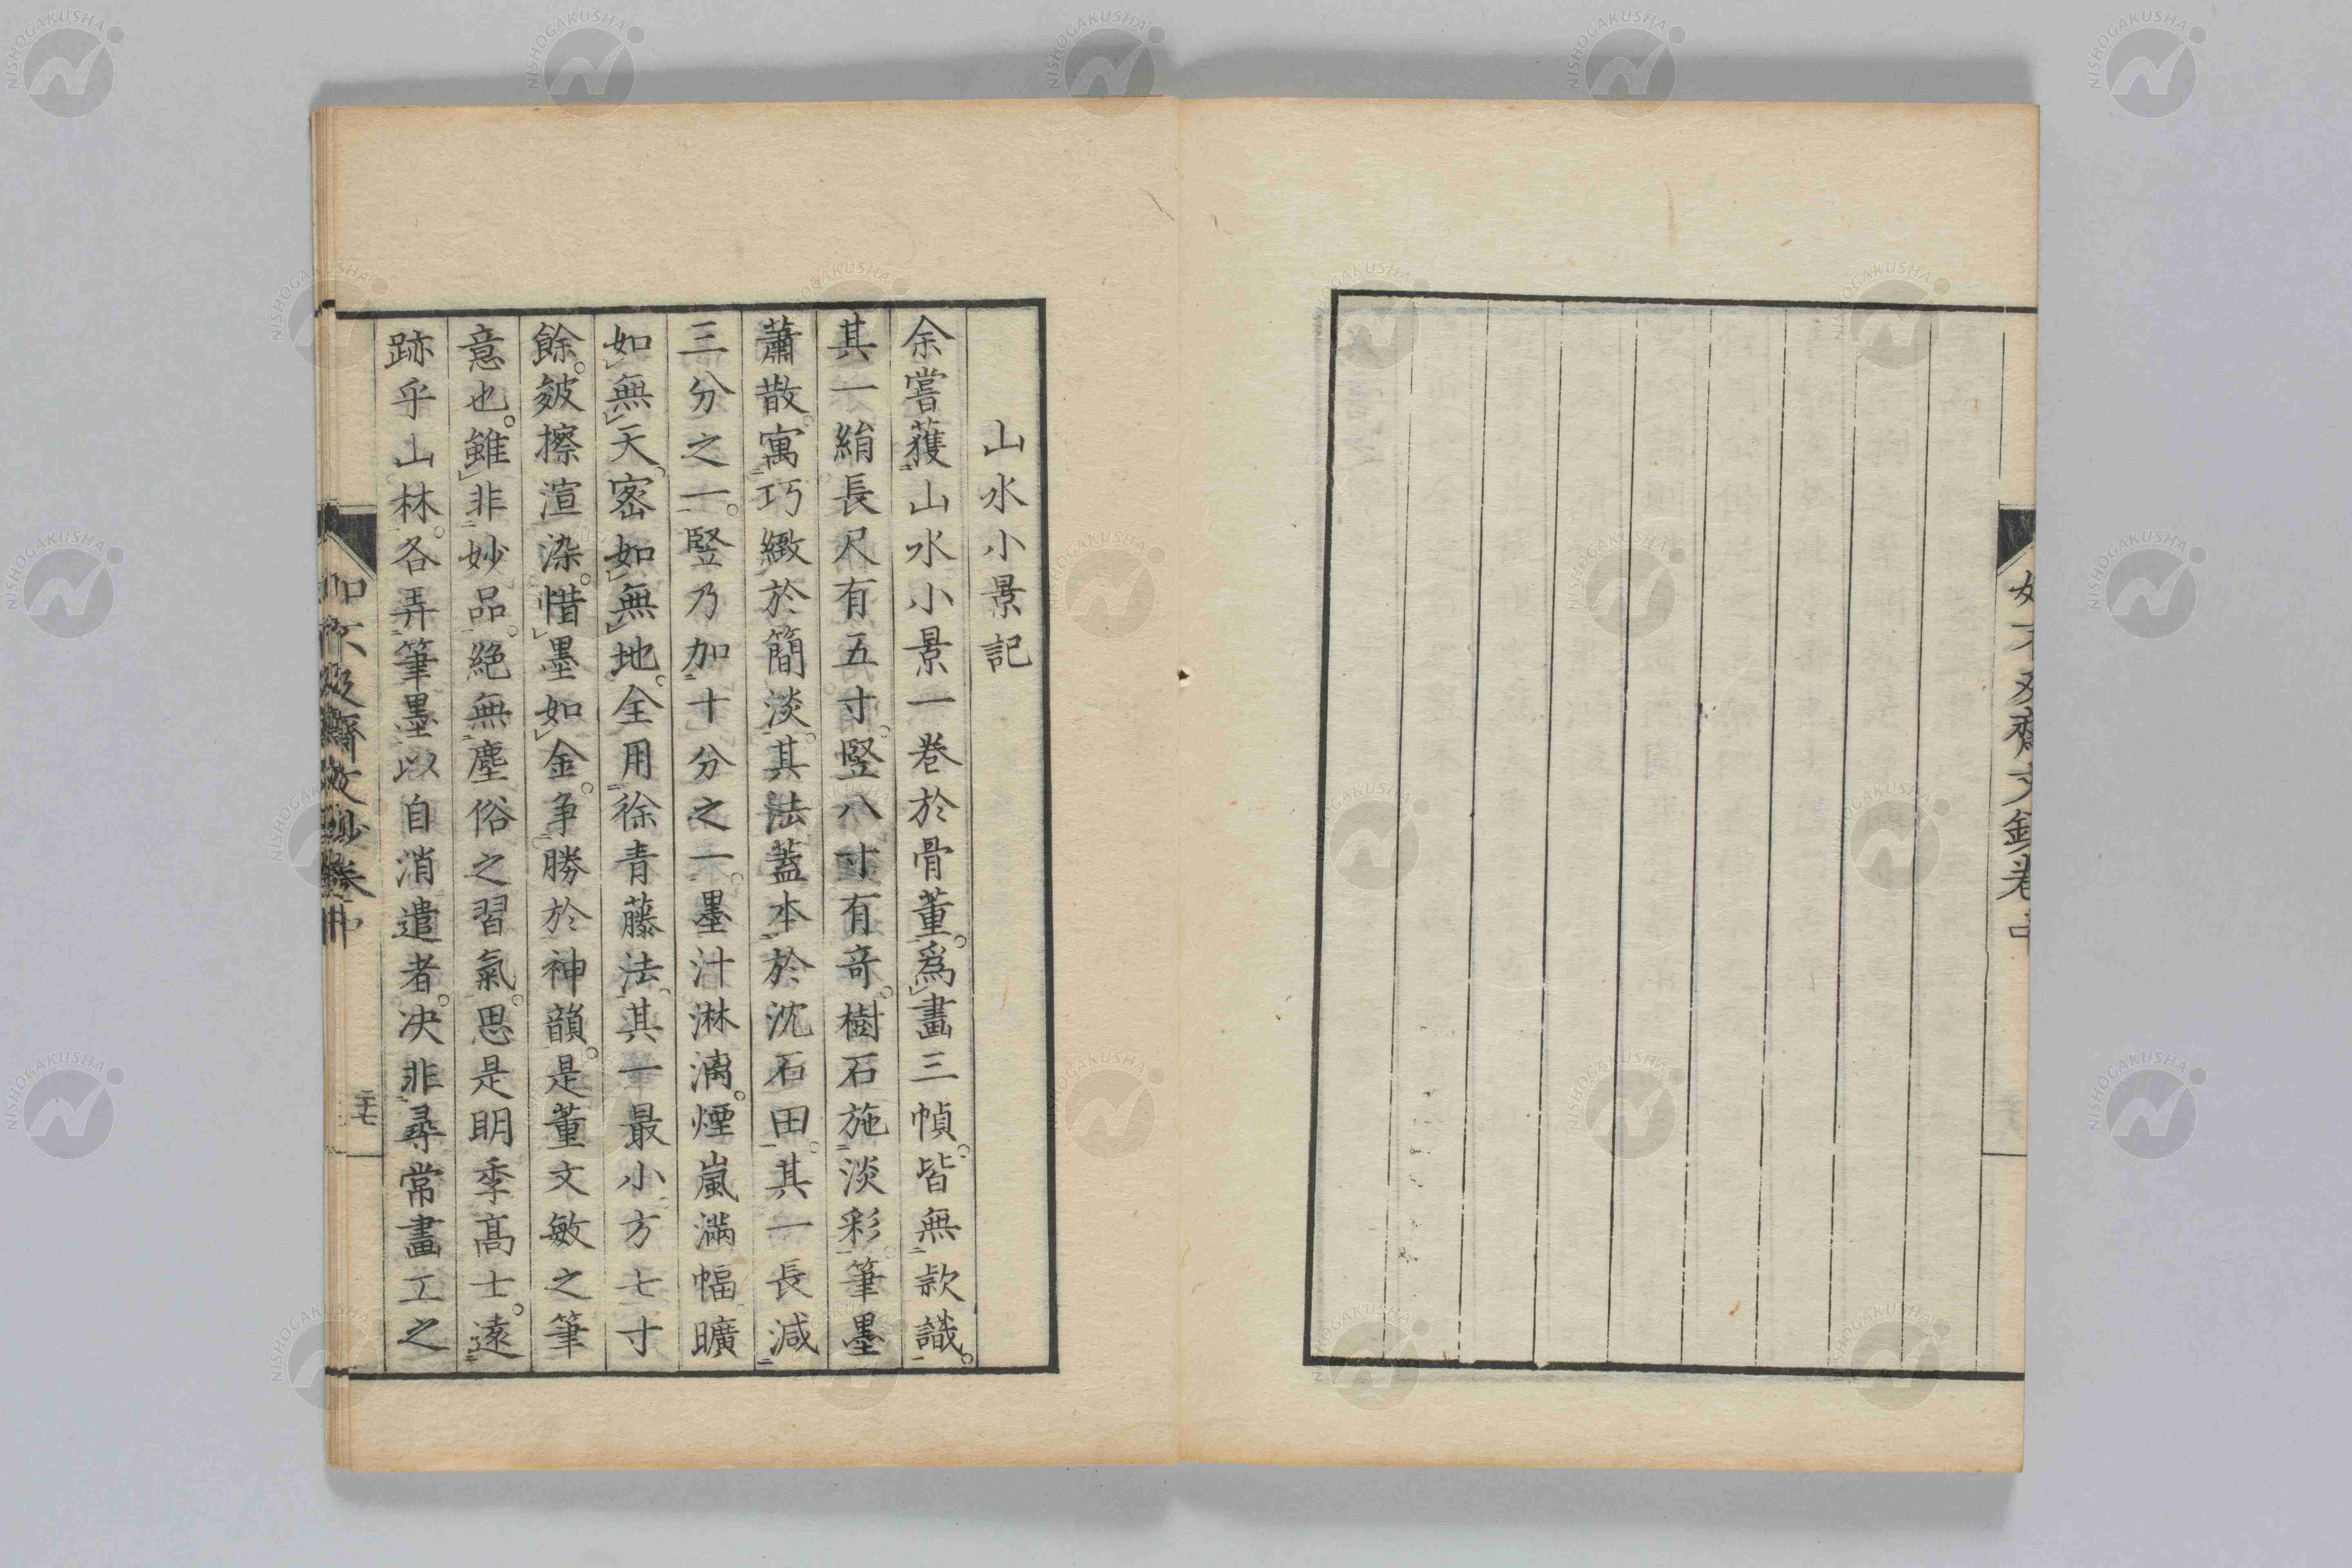 山水小景記
余嘗獲山水小景一卷於骨董。爲畫三幀。皆無款識。
其一絹長尺有五寸。竪八寸有奇。樹石施淡彩。筆墨
蕭散。寓巧緻於簡淡。其法蓋本於沈石田。其一長減
三分之一。竪乃加十分之一。墨汁淋漓。煙嵐滿幅。曠
如無天。密如無地。全用徐青藤法。其一最小。方七寸
餘。皴擦渲染。惜墨如金。爭勝於神韻。是董文敏之筆
意也。雖非妙品。絕無塵俗之習氣。思是明季高士。遠
跡乎山林。各弄筆墨以自消遣者。决非尋常畫工之
文鈔卷中
二十七
NISHOGAKUSHA